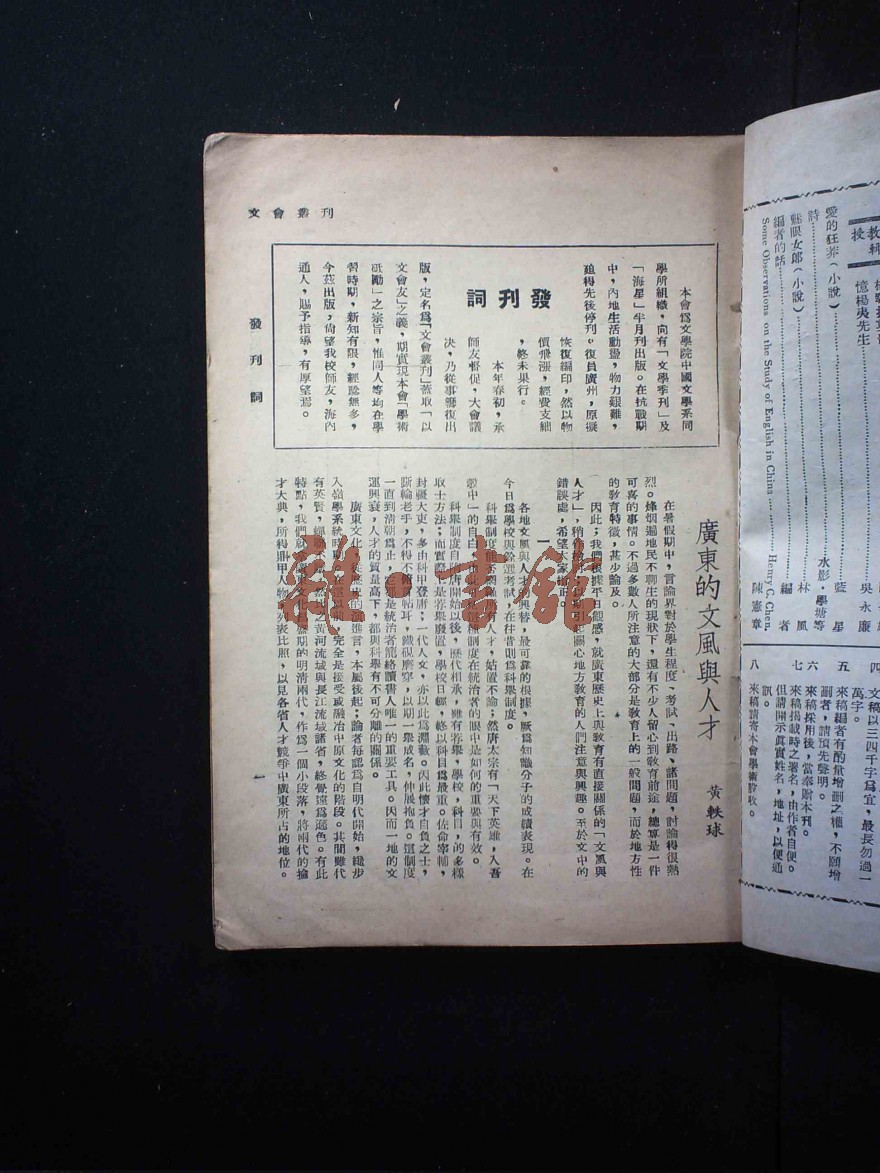 文會叢刊
發刊詞
發刊詞
本會爲文學院中國文學系同
學所組織,向有「文學季刊」及
「海星」半月刊出版。在抗戰期
中,內地生活動盪,物力艱難,
廹得先後停刊。復員廣州,原擬
恢復編印,然以物
價飛漲,經費支絀
,終未果行。
本年春初,承
師友督促,大會議
決,乃從事籌復出
版,定名爲「文會叢刊」蓋取「以
文會友」之義,期實現本會「學術
砥勵」之宗旨,惟同人等均在學
習時期,新知有限,經驗無多,
今茲出版,尙望我校師友,海內
通人,賜予指導,有厚望焉。
廣東的文風與人才
黃軼球
在暑假期中,言論界對於學生程度、考試、出路、諸問題,討論得很熱
烈。烽烟遍地民不聊生的現狀下,還有不少人留心到教育前途,總算是一件
可喜的事情。不過多數人所注意的大部分是教育上的一般問題,而於地方性
的教育特徵,甚少論及。
因此;我們根據平日觀感,就廣東歷史上與教育有直接關係的「文風與
人才」,稍作檢討;以期引起關心地方教育的人們注意與興趣。至於文中的
錯誤處,希望大家指正。
一
各地文風與人才的興替,最可靠的根據,厥爲知識分子的成績表現。在
今日爲學校與銓選考試,在往昔則爲科舉制度。
科舉制度能否網羅所有人才,姑置不論;然唐太宗有「天下英雄,入吾
彀中」的自白,由此可見這種制度在統治者的眼中是如何的重要與有效。
科舉制度自隋唐開始以後,歷代相承,雖有荐舉,學校,科目,的多樣
取士方法;而實際上是荐舉廢置,學校日輕,終以科目爲最重。佐命宰輔,
封疆大吏,多由科甲登庸;一代人文,亦以此爲淵藪。因此懷才自負之士,
斲輪老手,不得不俯首帖耳,鐵硯磨穿,以期一舉成名,伸展抱負。這制度
一直到淸朝爲止,它正是統治者籠絡讀書人唯一的重要工具。因而一地的文
運興衰,人才的質量高下,都與科舉有不可分離的關係。
廣東文化,從歷史的演進言,本屬後起;論者每認爲自明代開始,纔步
入嶺學系統時期。在這以前,完全是接受或融冶中原文化的階段。其間雖代
有英賢,蟬聯不絕,然視之黃河流域與長江流域諸省,終覺遠爲遜色。有此
特點,我們就將廣東文化昌盛期的明淸兩代,作爲一個小段落,將兩代的掄
才大典,所得鼎甲人物,列表比照,以見各省人才競爭中廣東所占的地位。
一
雜·書館
教授
憶楊夷先生
吳永廉
愛的狂莽(小說)
藍星
詩
水影,學塘等
魅眼女郎(小說)
林風
編者的話
編者
Some Observations on the Study of English in China
Henry C. Chen.
陳憲章
四
文稿以三四千字爲宜,最長勿過一
萬字。
五
來稿編者有酌量增删之權,不願增
删者,請預先聲明。
六
來稿採用後,當奉贈本刊。
七
來稿揭載時之署名,由作者自便。
但請開示眞實姓名,地址,以便通
訊。
八
來稿請寄本會學術股收。